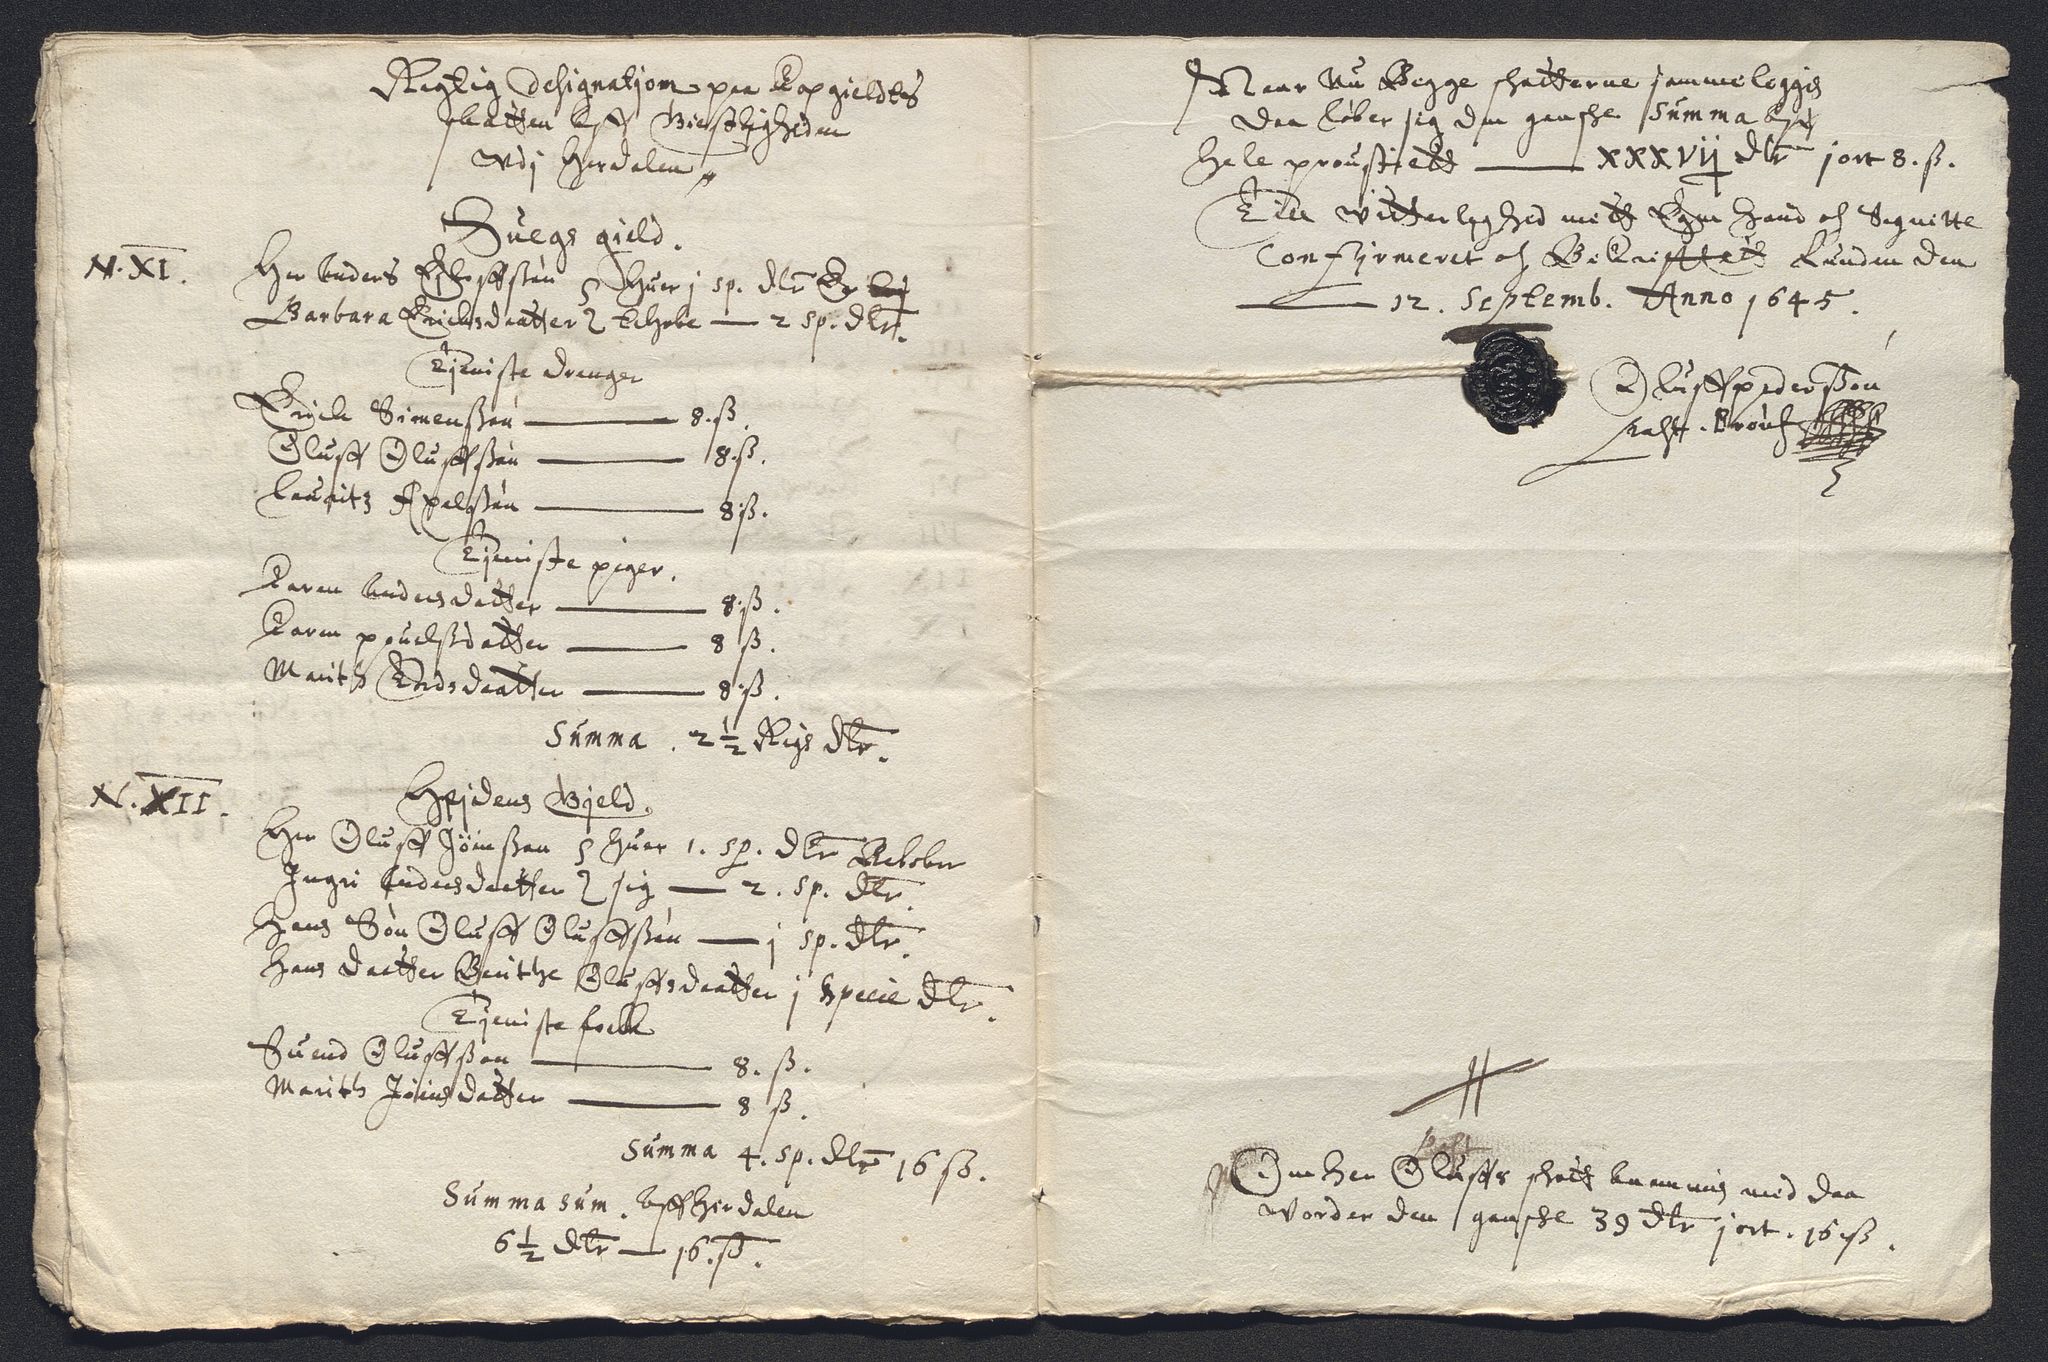 Regtig Designatjon paa Kopgieldts
skatten Aff Giestligheden
Vdj Herdalen
Suegs gield.
N. XI.
Her Anders huer j sp. dlr Er
Barbara Erichsdaatter Echobe — 2 sp. dlr.
Tjeniste drenger
Erich Simenssøn — 8. ß.
Oluff Oluffssøn — 8. ß.
Lauritz Axelssøn — 8 ß.
Tjeniste piger.
Karen Andersdatter — 8 ß.
Karen pouelsdatter — 8 ß.
Marith daatter — 8 ß.
Summa . 2 ½ Rigs dlr.
N. XII.
Hejdens Gjeld.
Her Oluff Jönssøn huer 1. sp. dlr Beløber
Ingri Andersdaatter sig — 2. sp. dlr.
Hans Søn Oluff Oluffssøn — j sp. dlr.
Hans daatter Berithe Oluffsdaatter j Specie dlr.
Tjeniste folck
Suend Oluffssøn — 8. ß.
Marith Jönsdatter — 8 ß.
Summa 4. sp. dlr 16 ß.
Summa sum . Aff Herdalen
6 ½ dlr — 16. ß.
Naar Nu Begge skatterne sammeleggis
Daa løber sig den gansche Summa Aff
hele proustiett — XXXVIj dlr jort 8. ß.
Till Vitterlighed mett Egen Haand och Segnitte
Confirmeret och Bekrefftett Lunden den
— 12. Septemb. Anno 1645.
Oluff pederssøn
Om Her Oluffs skatt Ammis med daa
vorder den gansche 39 dlr jort . 16 ß.